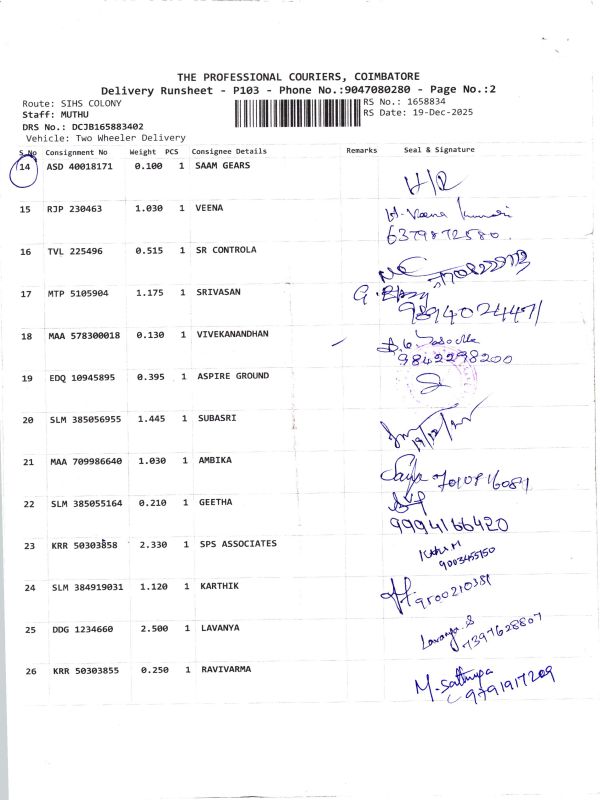 THE PROFESSIONAL COURIERS, COIMBATORE
Delivery Runsheet - P103 - Phone No.:9047080280 - Page No.:2
Route: SIHS COLONY RS No.: 1658834
Staff: MUTHU RS Date: 19-Dec-2025
DRS No.: DCJB165883402
Vehicle: Two Wheeler Delivery
S.No Consignment No Weight PCS Consignee Details Remarks Seal & Signature
14 ASD 40018171 0.100 1 SAAM GEARS
H/R
15 RJP 230463 1.030 1 VEENA
H. Veena Kumari
6379872580
16 TVL 225496 0.515 1 SR CONTROLA
17 MTP 5105904 1.175 1 SRIVASAN
9894024471
18 MAA 578300018 0.130 1 VIVEKANANDHAN
9842298200
19 EDQ 10945895 0.395 1 ASPIRE GROUND
20 SLM 385056955 1.445 1 SUBASRI
19/12/
21 MAA 709986640 1.030 1 AMBIKA
22 SLM 385055164 0.210 1 GEETHA
9994166420
23 KRR 50303858 2.330 1 SPS ASSOCIATES
9003455150
24 SLM 384919031 1.120 1 KARTHIK
9500210381
25 DDG 1234660 2.500 1 LAVANYA
Lavanya.S
7397628807
26 KRR 50303855 0.250 1 RAVIVARMA
M. Sathiya
9791917209